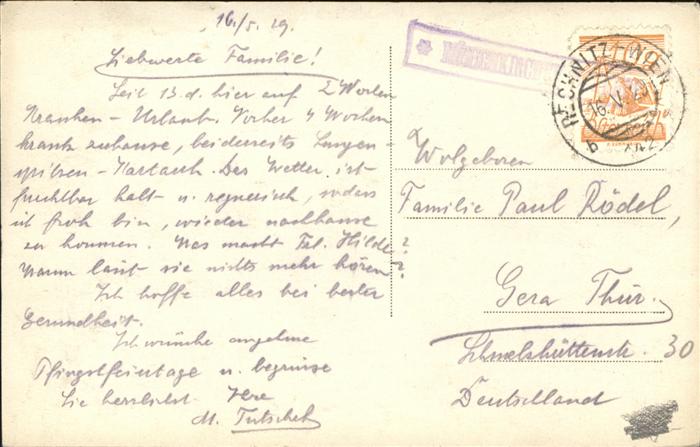 16./5. 29.
Liebwerte Familie!
Seit 13. d. hier auf 2 Wochen
Kranken-Urlaub. Vorher 4 Wochen
krank zuhause, beiderseits Lungen-
spitzen-Kartarrh. Das Wetter ist
furchtbar kalt u. regnerisch, sodass
ich froh bin, wieder nachhause
zu kommen. Was macht Frl. Hilde?
Warum lässt sie nichts mehr hören?
Ich hoffe alles bei bester
Gesundheit.
Ich wünsche angenehme
Pfingstfeiertage u. begrüsse
Sie herzlichst Ihre
M. Tutschek
RECHNITZ-WIEN
Wolgeboren
Familie Paul Rödel,
Gera Thür.
30
Deutschland